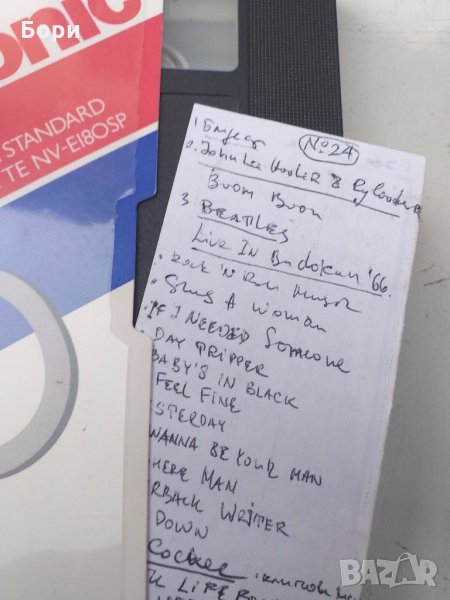 Бори
onic
STANDARD
TE NV-E180SP
No 24
1
2. John Lee Hooker & Ry Cooder
Boom Boom
3 BEATLES
Live In Budokan '66.
. Rock 'N Roll Music
. She's A Woman
. IF I NEEDED Someone
. DAY TRIPPER
BABY'S IN BLACK
FEEL FINE
STERDAY
WANNA BE YOUR MAN
HERE MAN
RBACK WRITER
DOWN
Cocker
LIFE
BAZAR